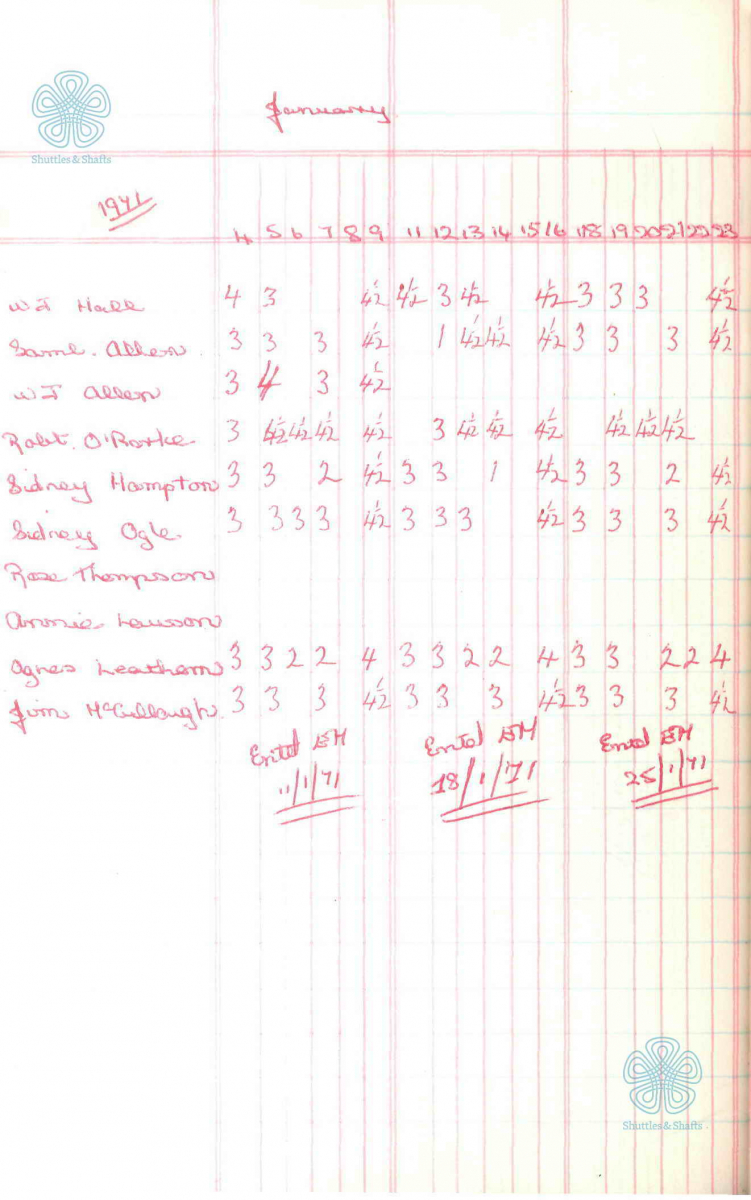 January
Shuttles & Shafts
1971
4 5 6 7 8 9 11 12 13 14 15 16 18 19 20 21 22 23
WJ Hall 4 3 4½ 4½ 3 4½ 4½ 3 3 3 4½
Saml. Allen 3 3 3 4½ 1 4½ 4½ 4½ 3 3 3 4½
WJ Allen 3 4 3 4½
Robt. O'Rorke 3 4½ 4½ 4½ 4½ 3 4½ 4½ 4½ 4½ 4½ 4½
Sidney Hampton 3 3 2 4½ 3 3 1 4½ 3 3 2 4½
Sidney Ogle. 3 3 3 3 4½ 3 3 3 4½ 3 3 3 4½
Rose Thompson
Annie Lawson
Agnes Leathem 3 3 2 2 4 3 3 2 2 4 3 3 2 2 4
Jim McCullough. 3 3 3 4½ 3 3 3 4½ 3 3 3 4½
Entd EH Entd EH Entd EH
11/1/71 18/1/71 25/1/71
Shuttles & Shafts